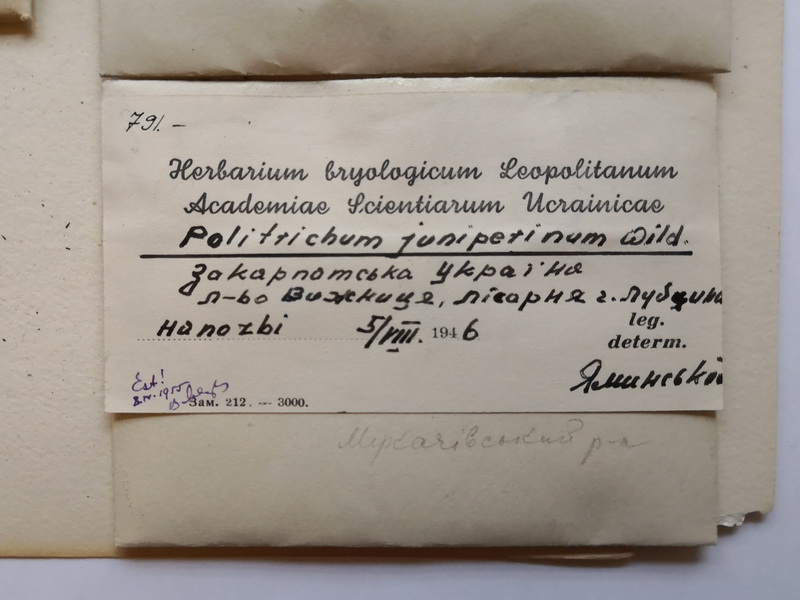 791. –
Herbarium bryologicum Leopolitanum
Academiae Scientiarum Ucrainicae
Politrichum juniperinum Wild.
Закарпатська Україна
л-во Вижниця, лісарня г.
нагозві 5/VIII. 1946
leg.
determ.
Яминської
Est!
1955
Зам. 212. — 3000.
Мукачівський р-н